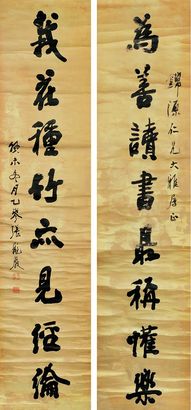 錦源仁兄大雅屬正
為善讀書最稱懽樂
栽花種竹亦見經綸
癸未冬月乙峯張